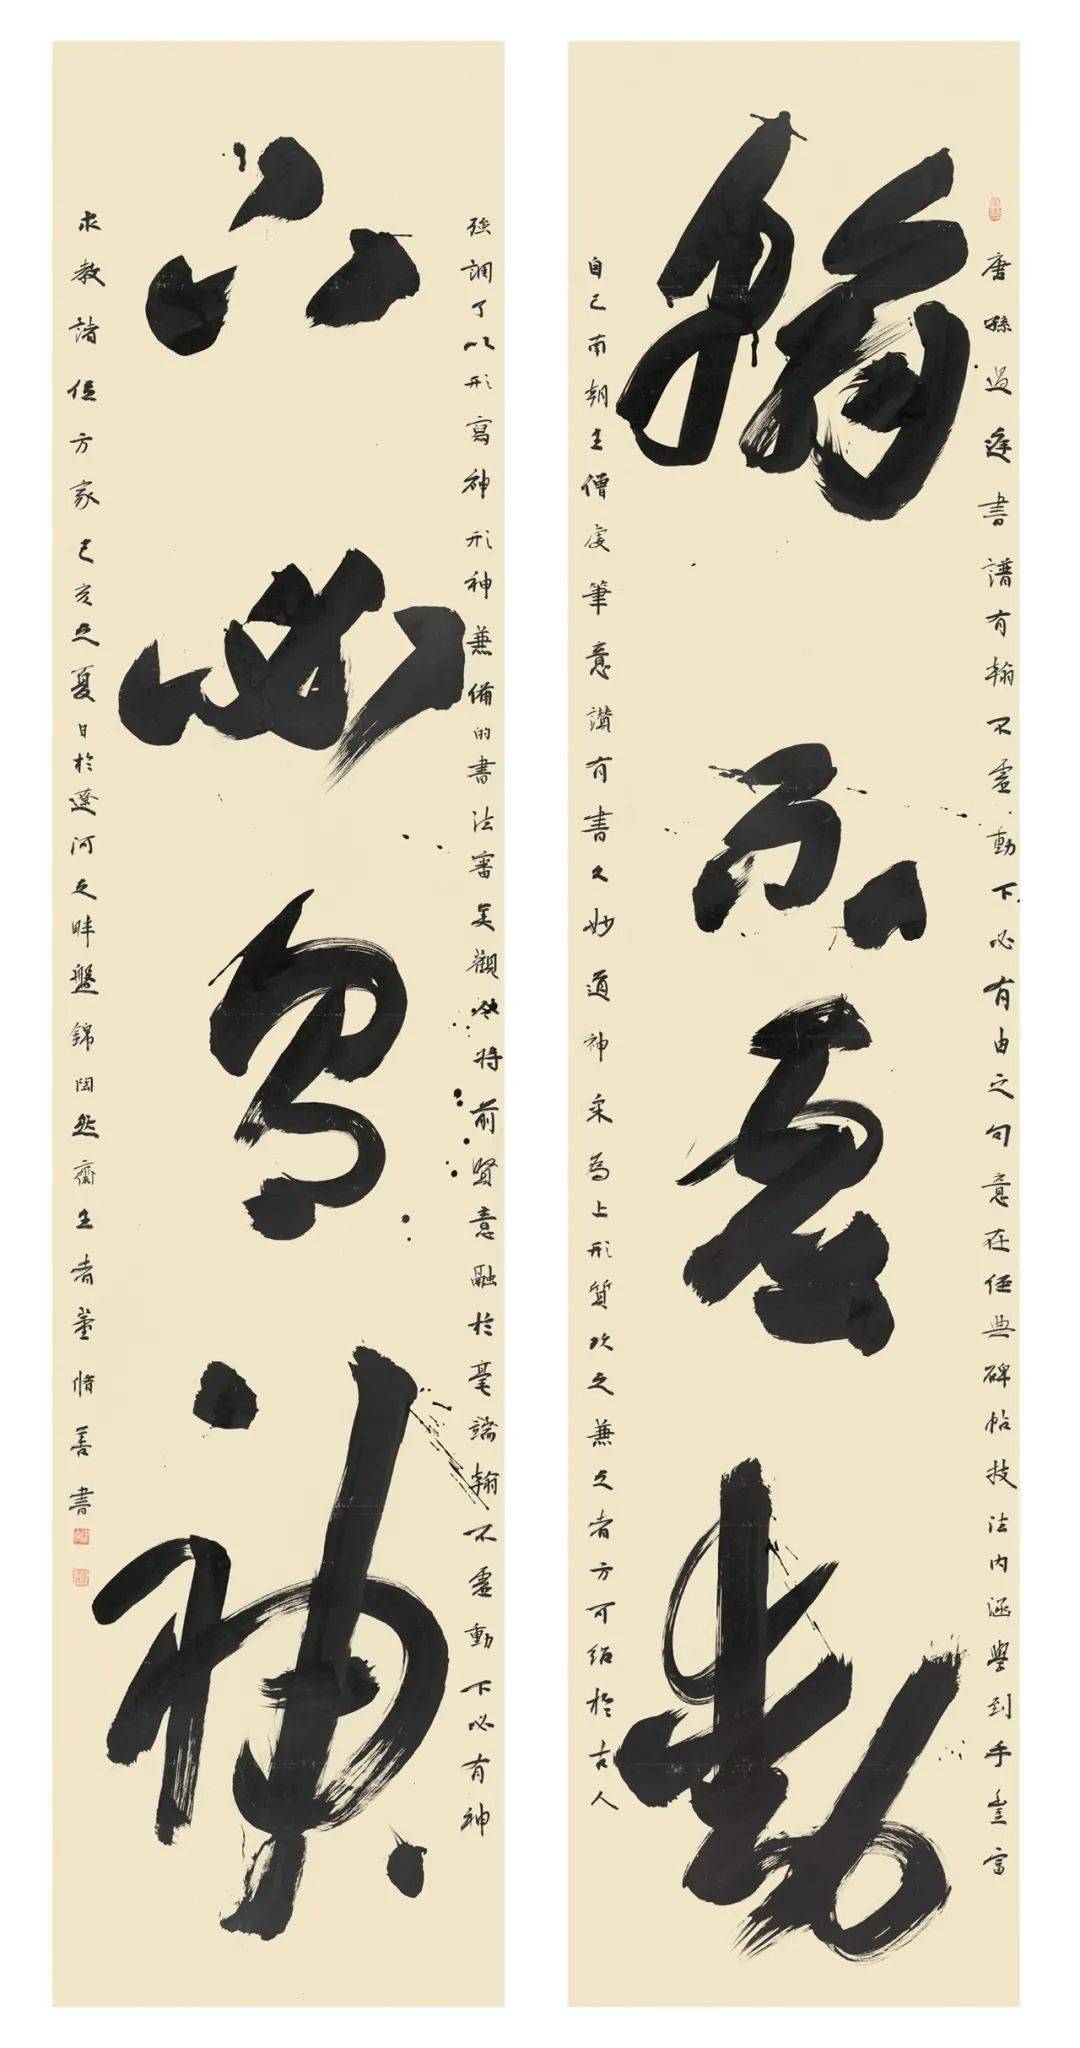 翰不虛動
下必有神
唐孫過庭書譜有翰不虛動下必有由之句意在經典碑帖技法內涵學到手豐富
自己南朝王僧虔筆意讚有書之妙道神采為上形質次之兼之者方可紹於古人
強調了以形寫神形神兼備的書法審美觀念將前賢意融於毫端翰不虛動下必有神
求教諸位方家己亥之夏日於遼河之畔盤錦陶然齋主者董脩善書